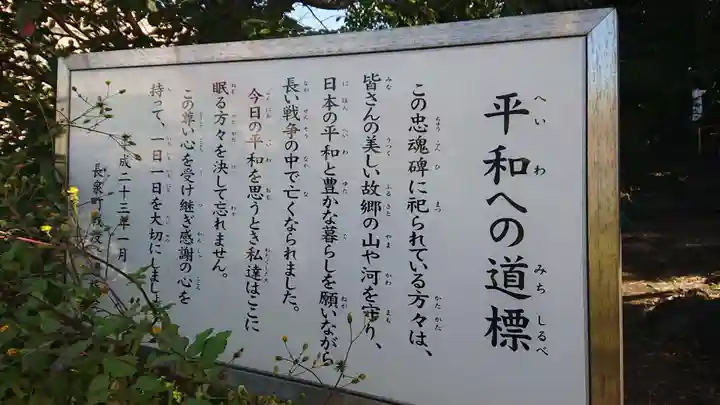 平和への道標
この忠魂碑に祀られている方々は、
皆さんの美しい故郷の山や河を守り、
日本の平和と豊かな暮らしを願いながら
長い戦争の中で亡くなられました。
今日の平和を思うとき私達はここに
眠る方々を決して忘れません。
この尊い心を受け継ぎ感謝の心を
持って、一日一日を大切にしましょ
成二十三年一月
長泉町戦没